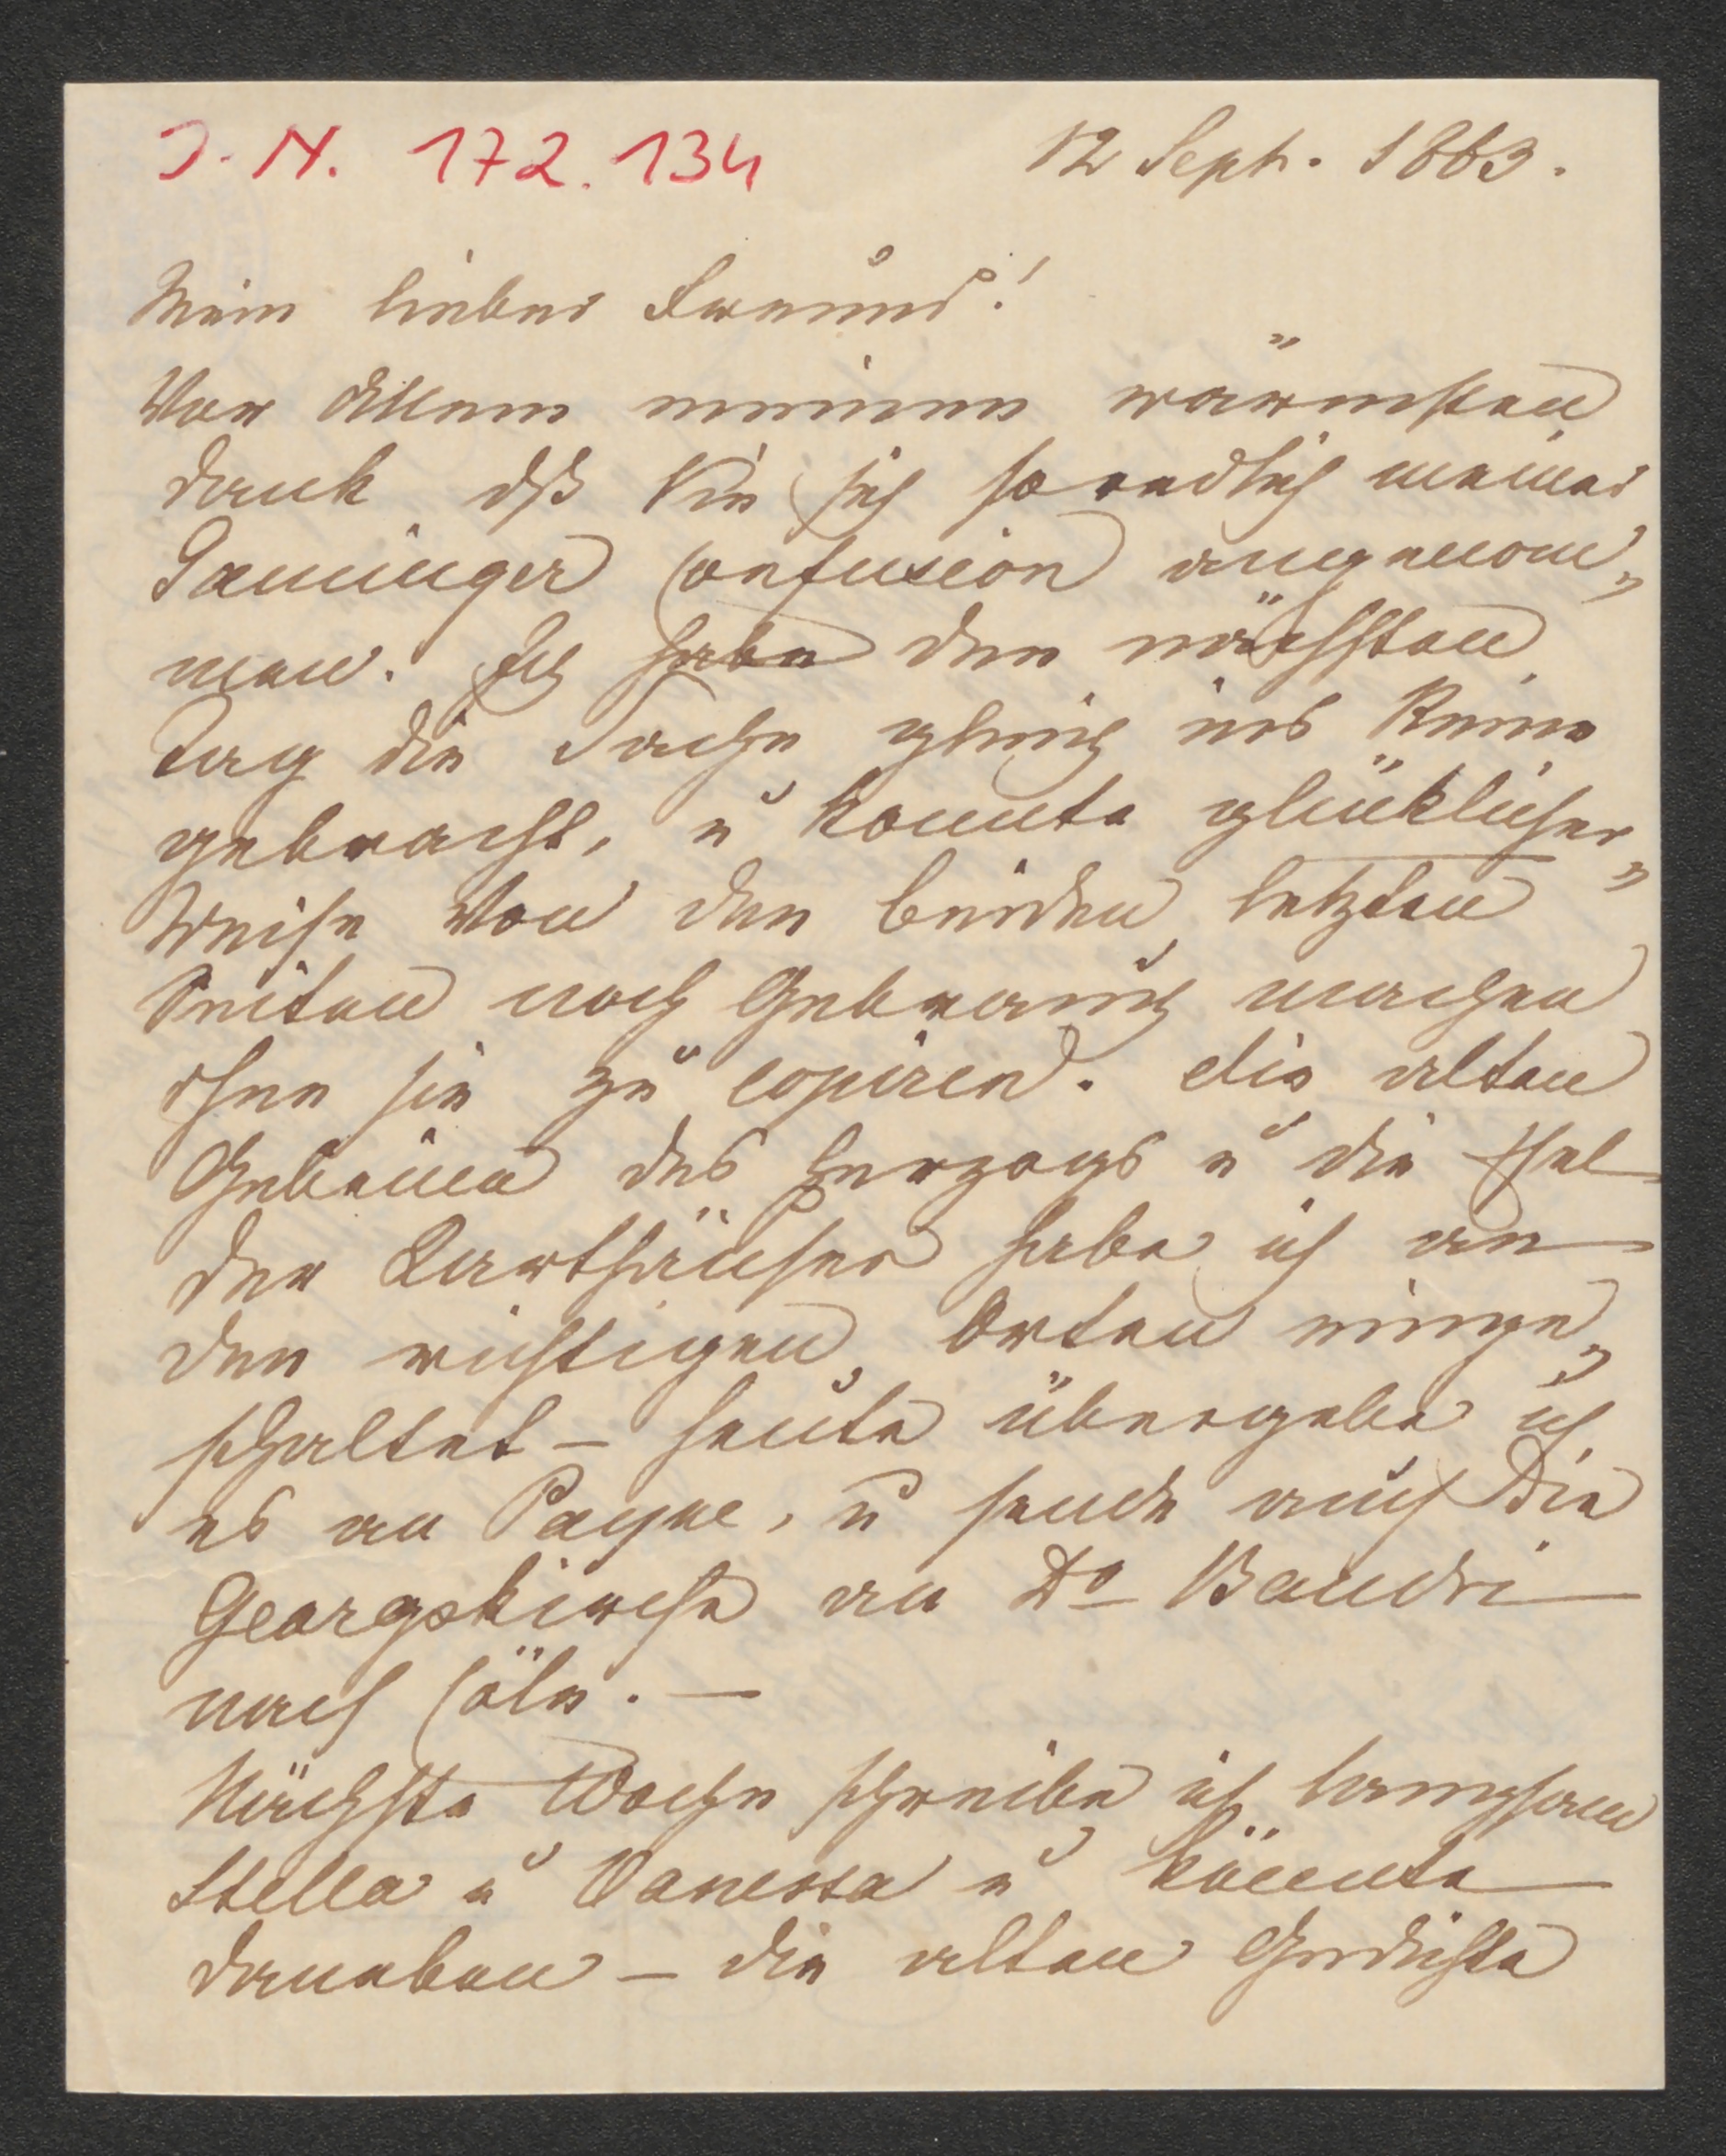 I. N. 172.134
12 Sept. 1863.
Mein lieber Freund!
Vor Allem meinen wärmsten
Dank dß Sie sich so redlich meiner
Gaminger Confusion angenom„
men. Ich habe den nächsten
Tag die Sache gleich ins Reine
gebracht, u konnte glücklicher„
Weise von den beiden letzten
Seiten noch Gebrauch machen
ohne sie zu copiren. Die alten
Gebeine des Herzogs u die
der Karthäuser habe ich an
den richtigen Orten einge„
schaltet – heute übergebe ich
es an Payne, u sende auch die
Georgskirche an Dr Baudri
nach Cöln. —
Nächste Woche schreibe ich langsam
Stella u Vanessa u könnte
daneben – die alten Gedichte